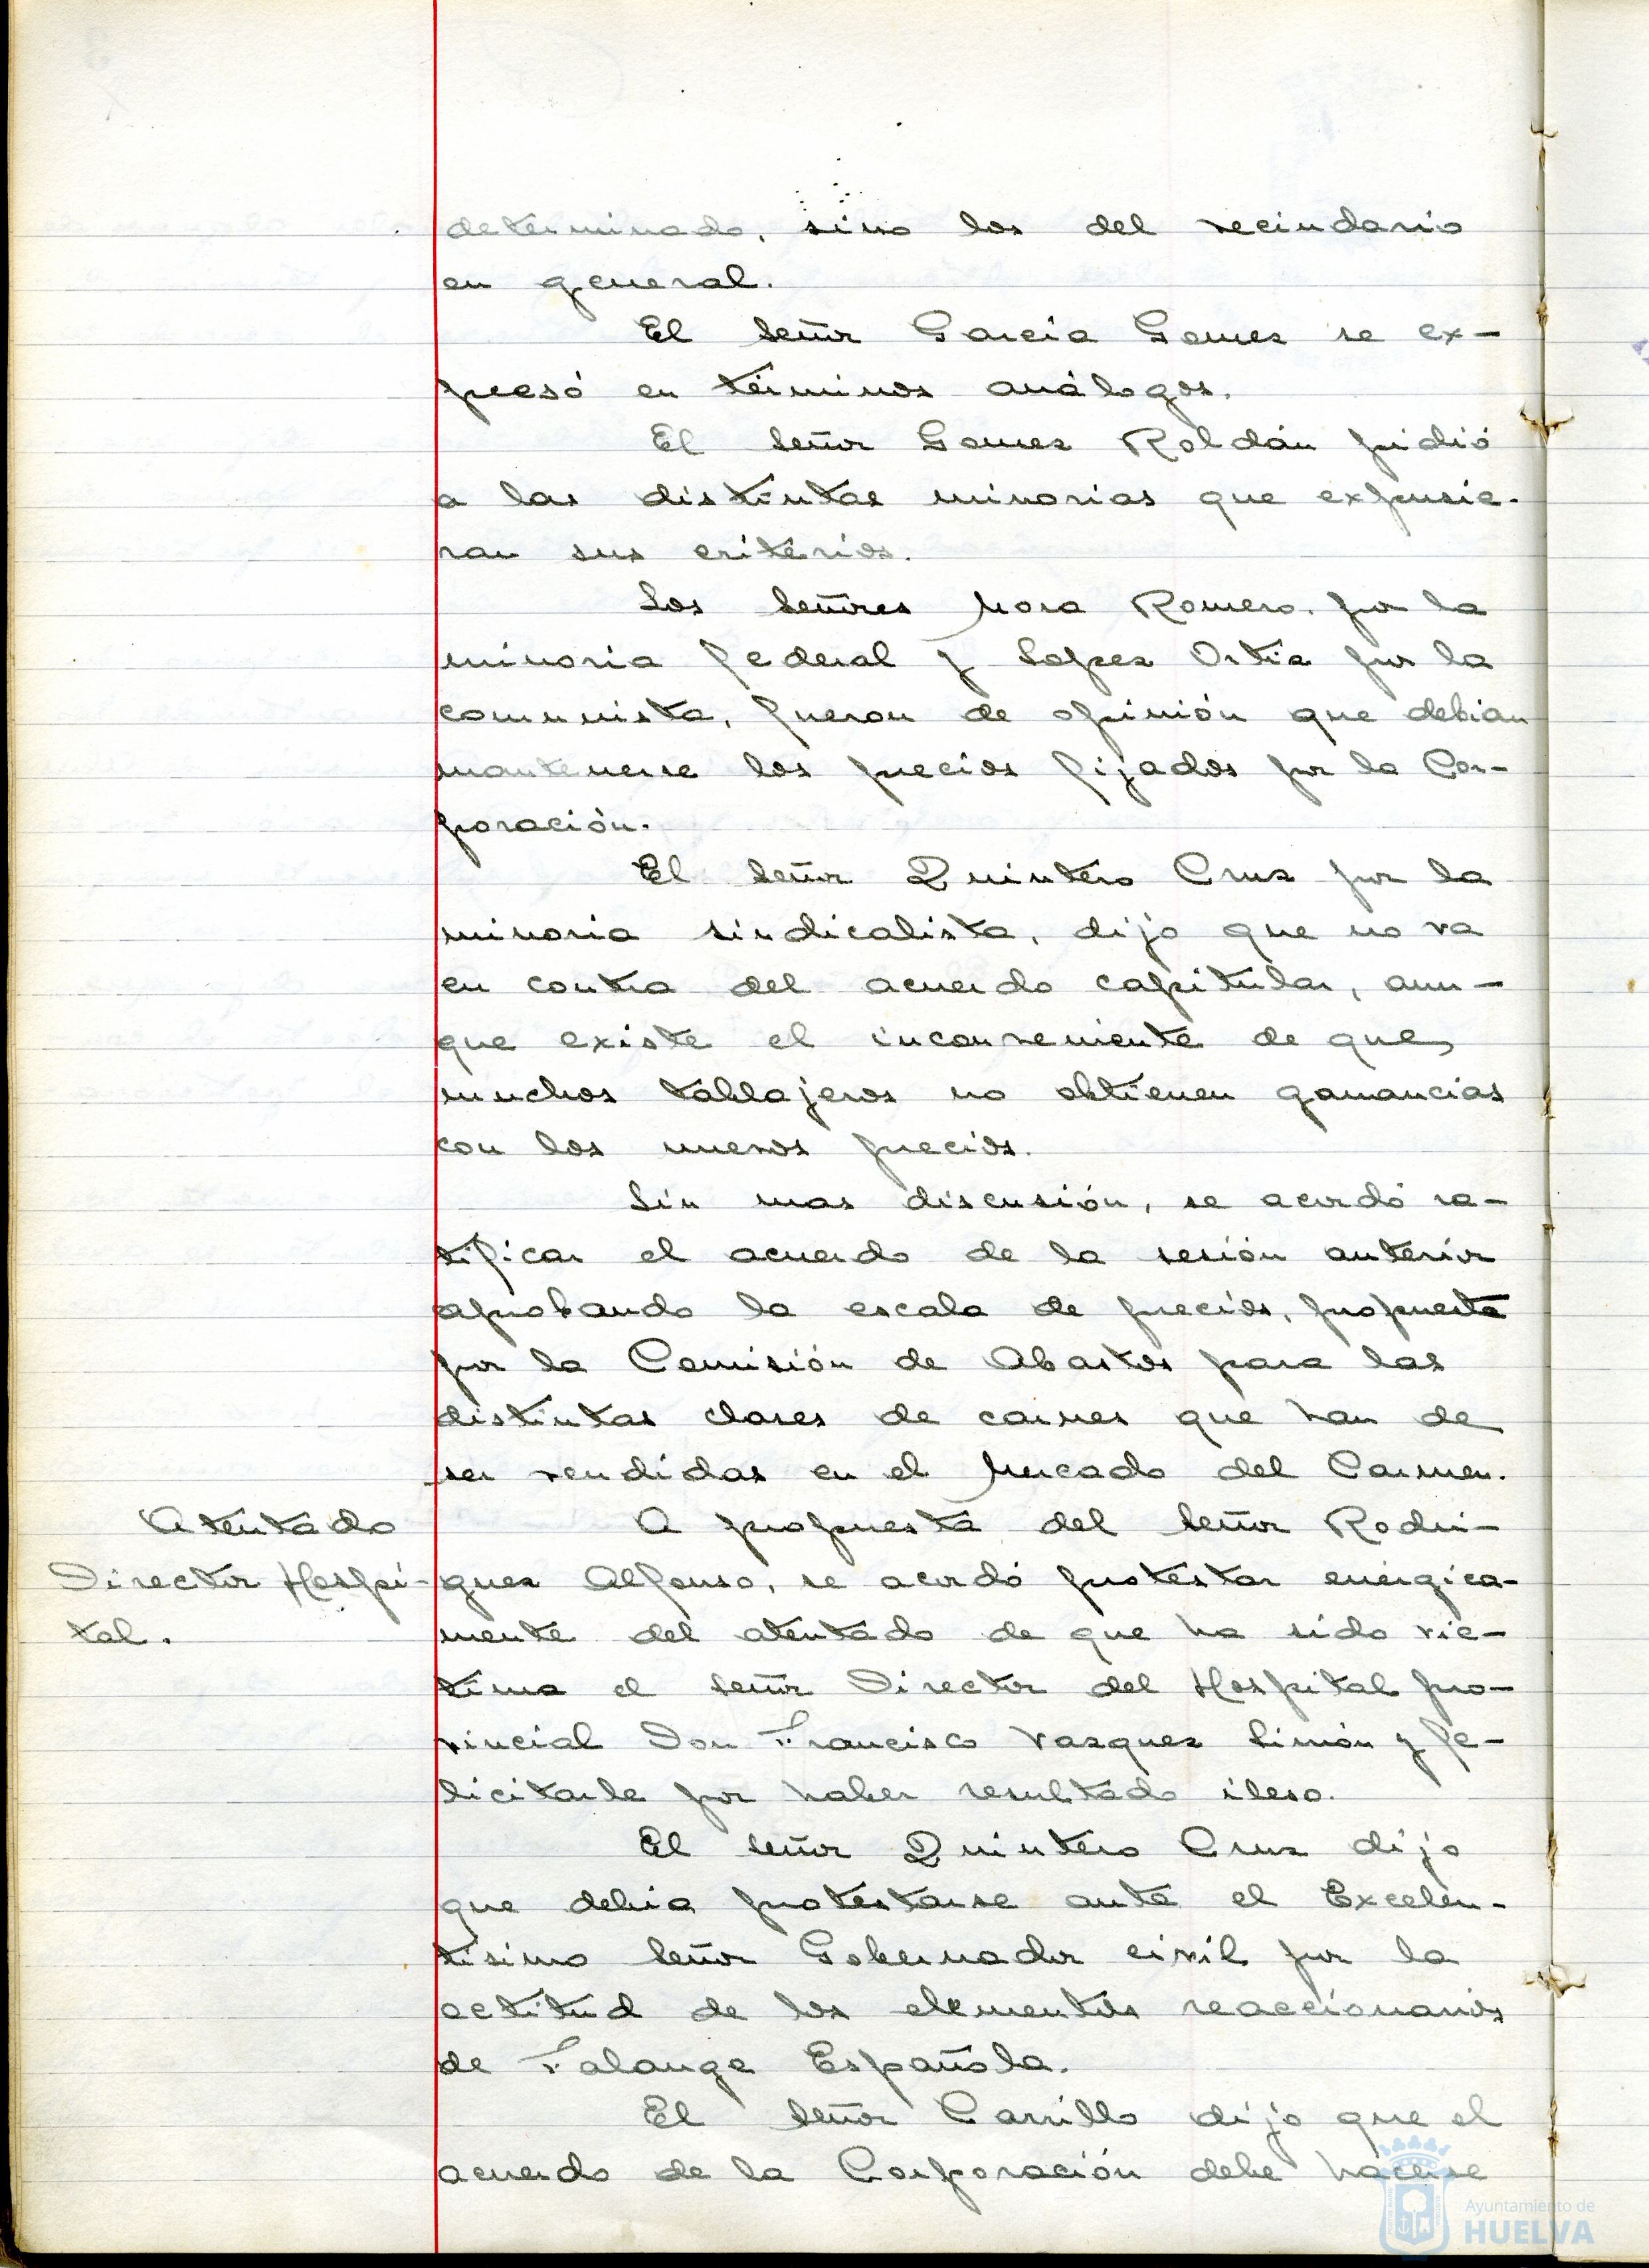 determinado, sino los del vecindario
en general.
El Señor García Gomez se ex-
presó en términos análogos.
El Señor Gomez Roldán pidió
a las distintas minorias que expusie-
ran sus criterios.
Los Señores Mora Romero, por la
minoria federal y Lopez Ortiz por la
comunista, fueron de opinión que debian
mantenerse los precios fijados por la Cor-
poración.
El Señor Quintero Cruz por la
minoria sindicalista, dijo que no va
en contra del acuerdo capitular, aun-
que existe el inconveniente de que
muchos tablajeros no obtienen ganancias
con los nuevos precios.
Sin mas discusión, se acordó ra-
tificar el acuerdo de la sesión anterior
aprobando la escala de precios, propuesta
por la Comisión de Abastos para las
distintas clases de carnes que han de
ser vendidas en el Mercado del Carmen.
Atentado
Director Hospi-
tal.
A propuesta del Señor Rodri-
guez Alfonso, se acordó protestar enérgica-
mente del atentado de que ha sido víc-
tima el Señor Director del Hospital pro-
vincial Don Francisco Vazquez Limón y fe-
licitarle por haber resultado ileso.
El Señor Quintero Cruz dijo
que debia protestarse ante el Excelen-
tísimo Señor Gobernador civil por la
actitud de los elementos reaccionarios
de Falange Española.
El Señor Carrillo dijo que el
acuerdo de la Corporación debe hacerse
Ayuntamiento de
HUELVA